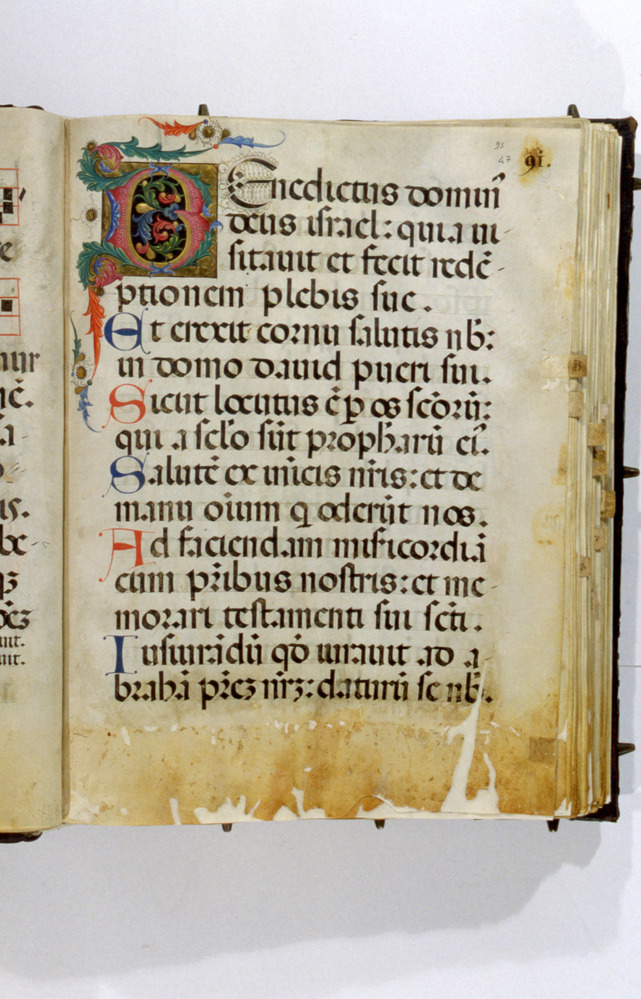 91
47
91.
BEnedictus domin̄
deus israel: quia ui
sitauit et fecit redē
ptionem plebis sue.
Et erexit cornu salutis nb̄:
in domo dauid pueri sui.
Sicut locutus ē p os scōrū:
qui a sclo sūt prophārū ei.
Salutē ex inicis nr̄is: et de
manu oīum q oderūt nos.
Ad faciendam misicordiā
cum pr̄ibus nostris: et me
morari testamenti sui scti.
Iusiurādū qd̄ iurauit ad a
brahā pr̄eꝫ nr̄ꝫ: daturū se nb̄.